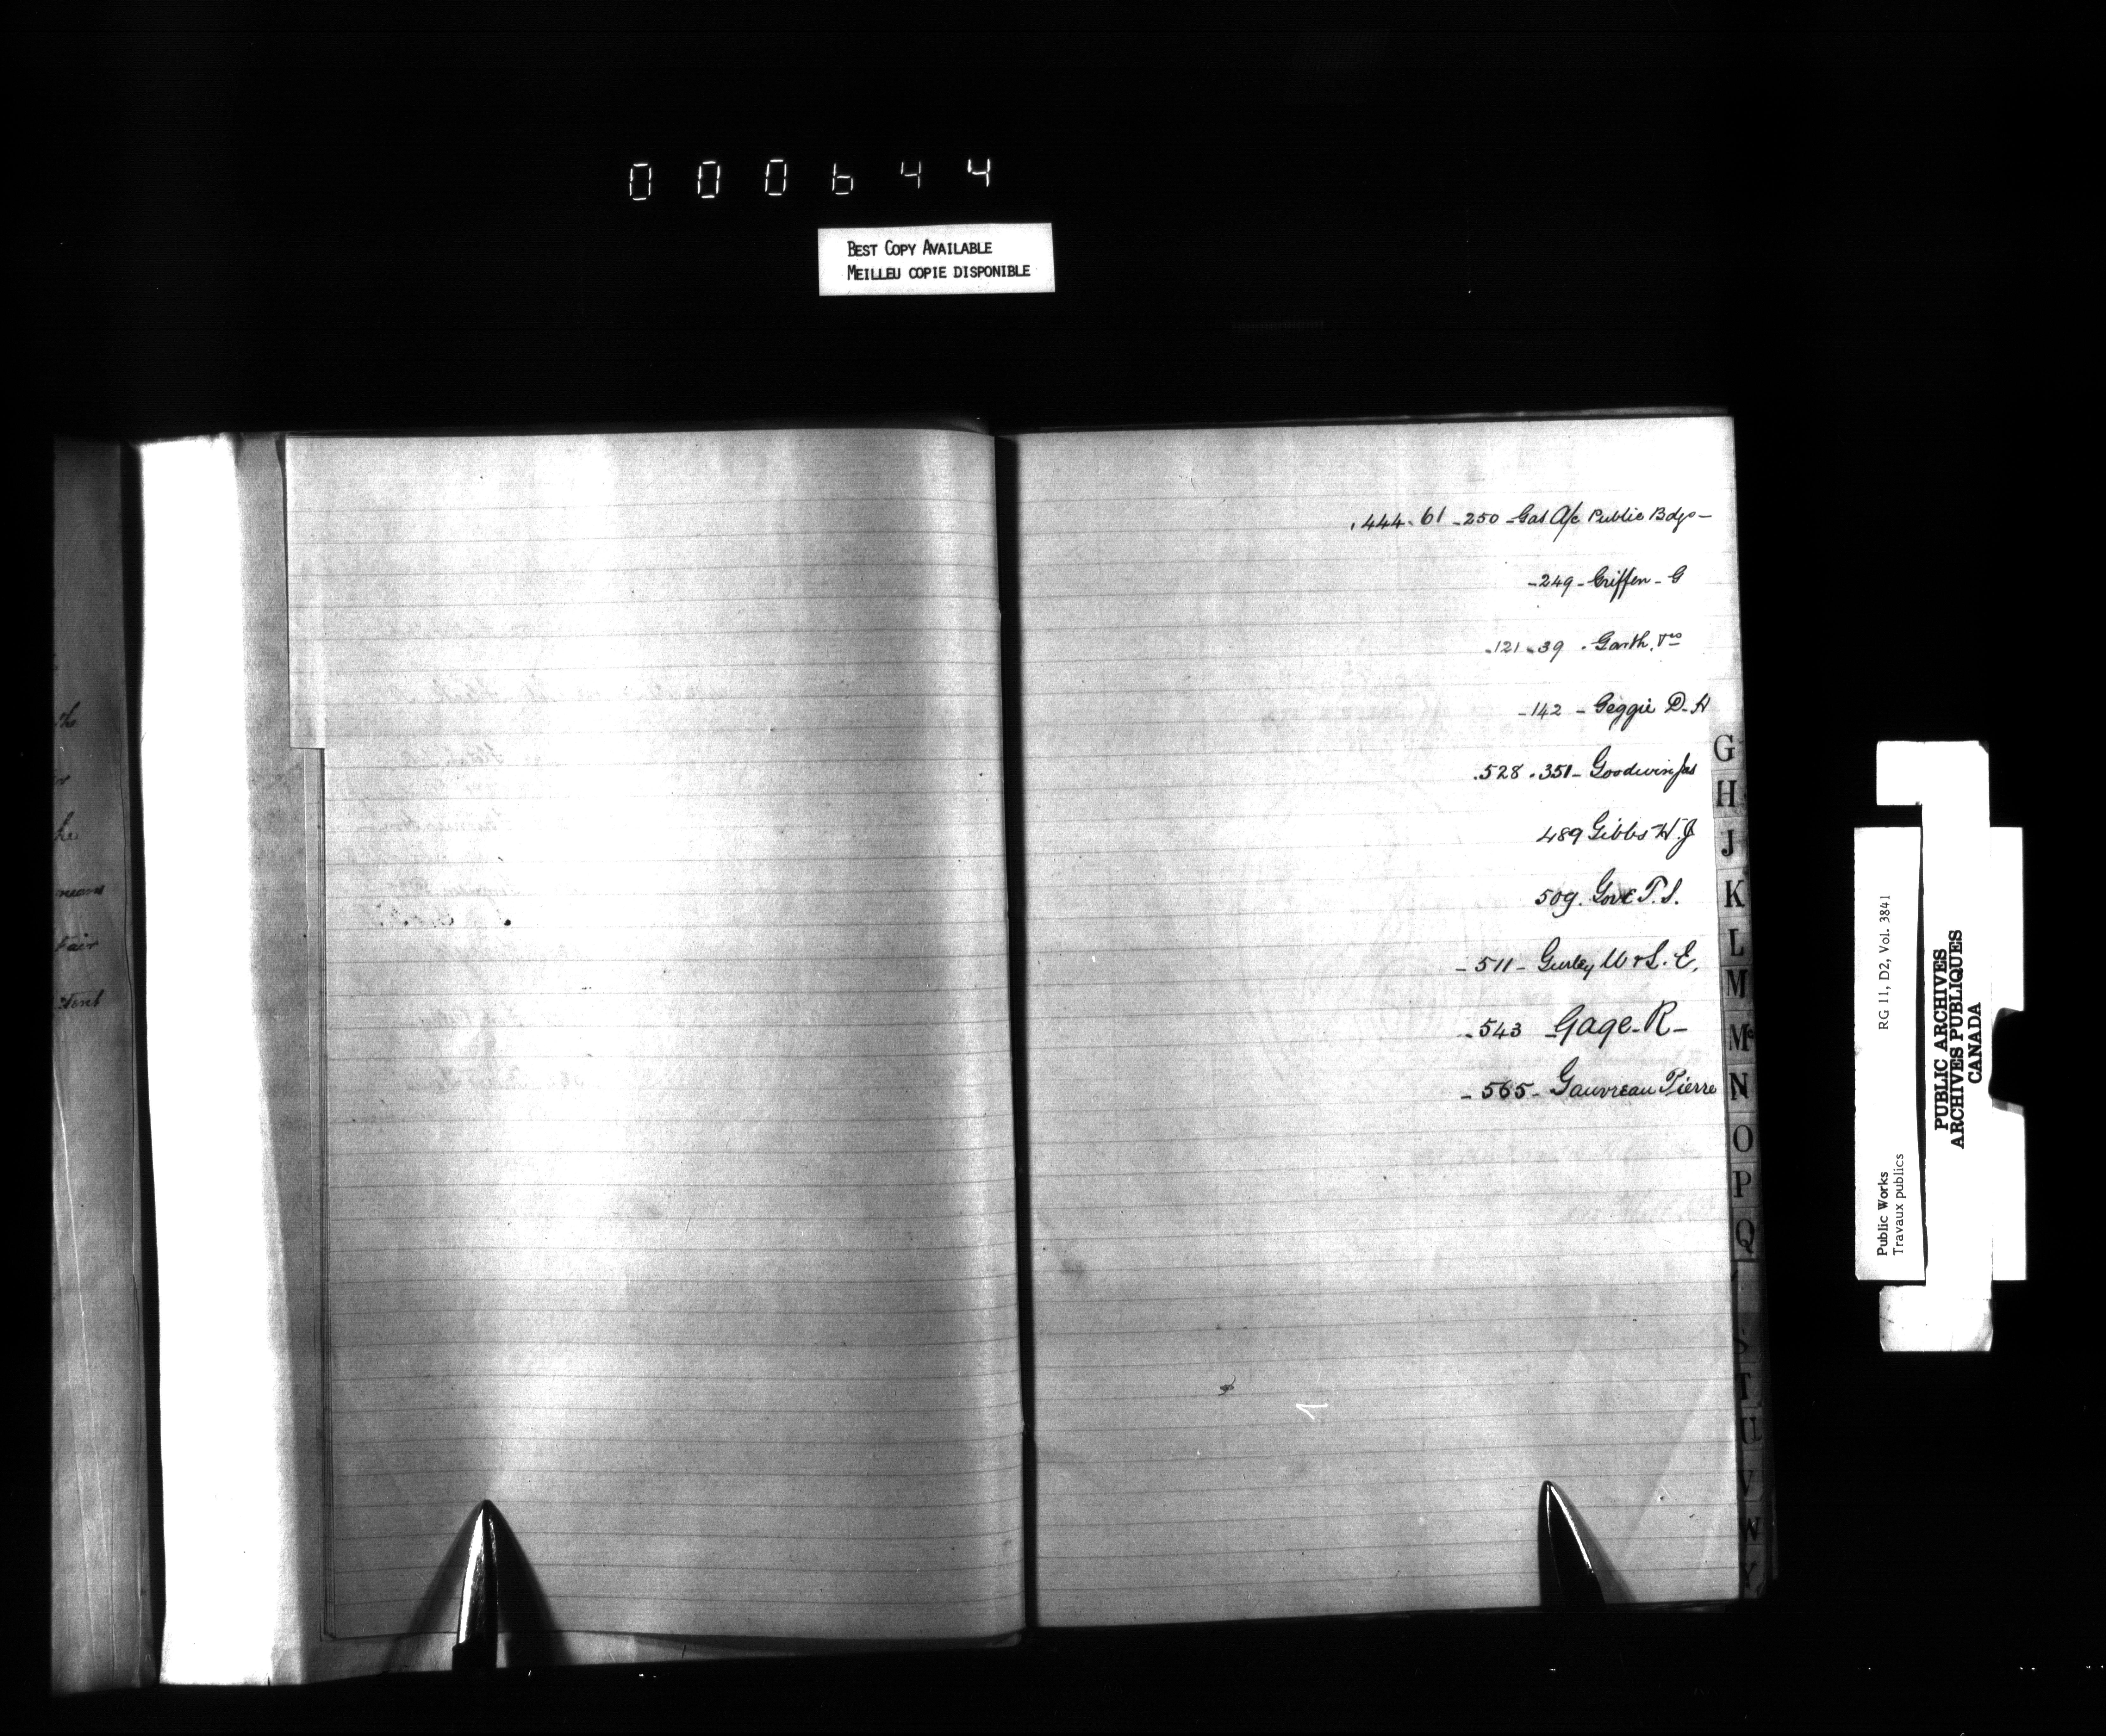 000644
BEST COPY AVAILABLE
MEILLEU COPIE DISPONIBLE
the
he
means
Fair
.444. 61 -250 -Gas A/c Public Bdgs-
-249- Griffen - G
.121-39 . Garth,
-142 - Geggie D. H
.528 .351- Goodwin Jas
489 Gibbs W. J
509. Gove T. S.
- 511- Gurley W & L. E.
-543 -Gage-R-
- 565- Gauvreau Pierre
G
H
J
K
L
M
Mc
N
O
P
Q
S
T
U
V
W
Y
Public Works
Travaux publics
RG 11, D2, Vol. 3841
PUBLIC ARCHIVES
ARCHIVES PUBLIQUES
CANADA